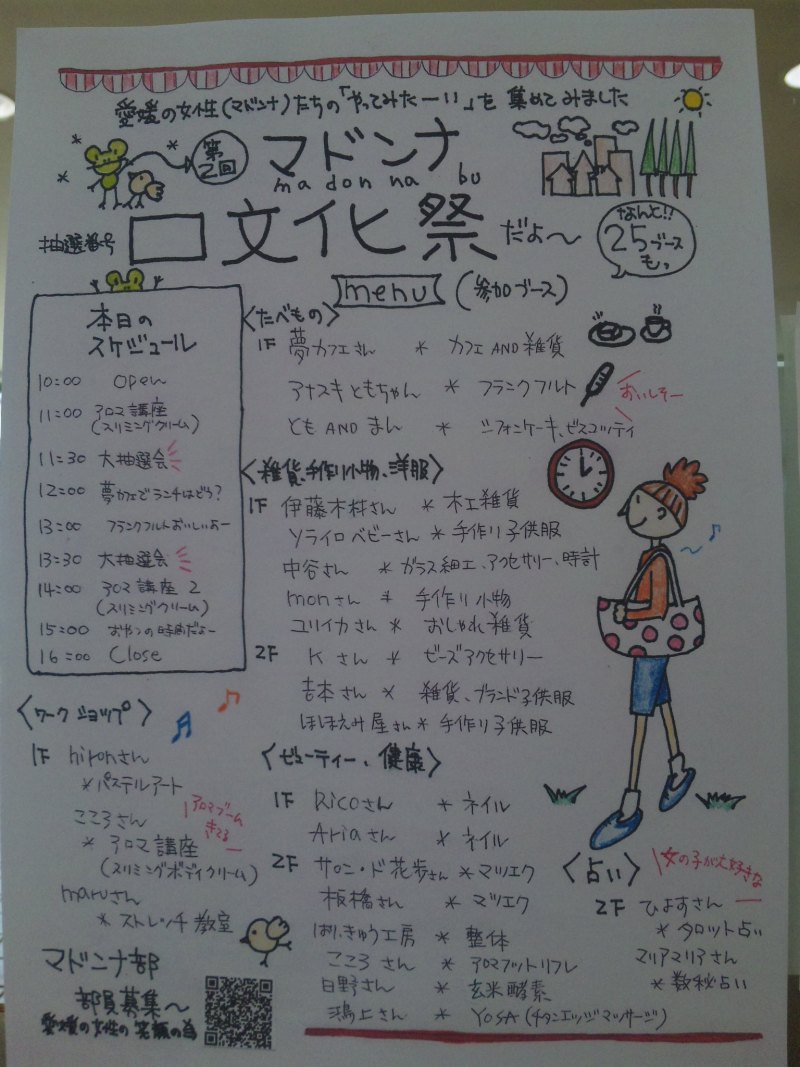 愛媛の女性(マドンナ)たちの「やってみたーい」を集めてみました
第2回
マドンナ
madonna bu
文化祭だよ～
抽選番号
なんと!!
25ブース
もっ
menu (参加ブース)
本日の
スケジュール
10:00 open
11:00 アロマ講座
(スリミングクリーム)
11:30 大抽選会
12:00 夢カフェでランチはどう?
13:00 フランクフルトおいしいよー
13:30 大抽選会
14:00 アロマ講座2
(スリミングクリーム)
15:00 おやつの時間だよー
16:00 Close
<たべもの>
1F 夢カフェさん * カフェ AND 雑貨
アナスキともちゃん * フランクフルト
おいしそー
とも AND まん * シフォンケーキ、ビスコッティ
<雑貨、手作り小物、洋服>
1F 伊藤木材さん * 木工雑貨
ソライロベビーさん * 手作り子供服
中谷さん * ガラス細工、アクセサリー、時計
monさん * 手作り小物
ユリイカさん * おしゃれ雑貨
2F Kさん * ビーズアクセサリー
吉本さん * 雑貨、ブランド子供服
ほほえみ屋さん * 手作り子供服
<ワークショップ>
1F hironさん
*パステルアート
こころさん
アロマブーム
きてる
* アロマ講座
(スリミングボディクリーム)
maruさん
* ストレッチ教室
<ビューティー、健康>
1F Ricoさん * ネイル
Ariaさん * ネイル
2F サロン・ド花歩さん *マツエク
板橋さん * マツエク
はり、きゅう工房 * 整体
こころさん * アロマフットリフレ
日野さん * 玄米酵素
鴻上さん * YOSA(チタンエッジマッサージ)
<占い>
女の子が大好きな
2F ひよすさん
* タロット占い
マリアマリアさん
*数秘占い
マドンナ部
部員募集～
愛媛の女性の笑顔の為